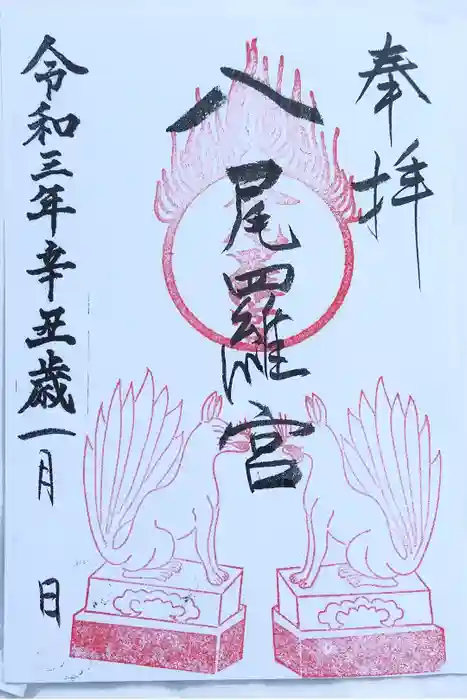 奉拝
八尾羅宮
令和三年辛丑歳一月 日